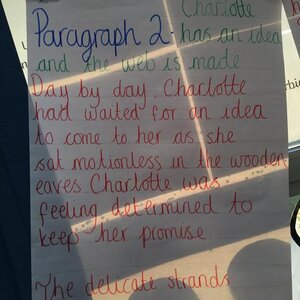 Charlotte
Paragraph 2- has an idea
and the web is made
Day by day, Charlotte
had waited for an idea
to come to her as she
sat motionless in the wooden
eaves. Charlotte was
feeling determined to
keep her promise.
The delicate strands